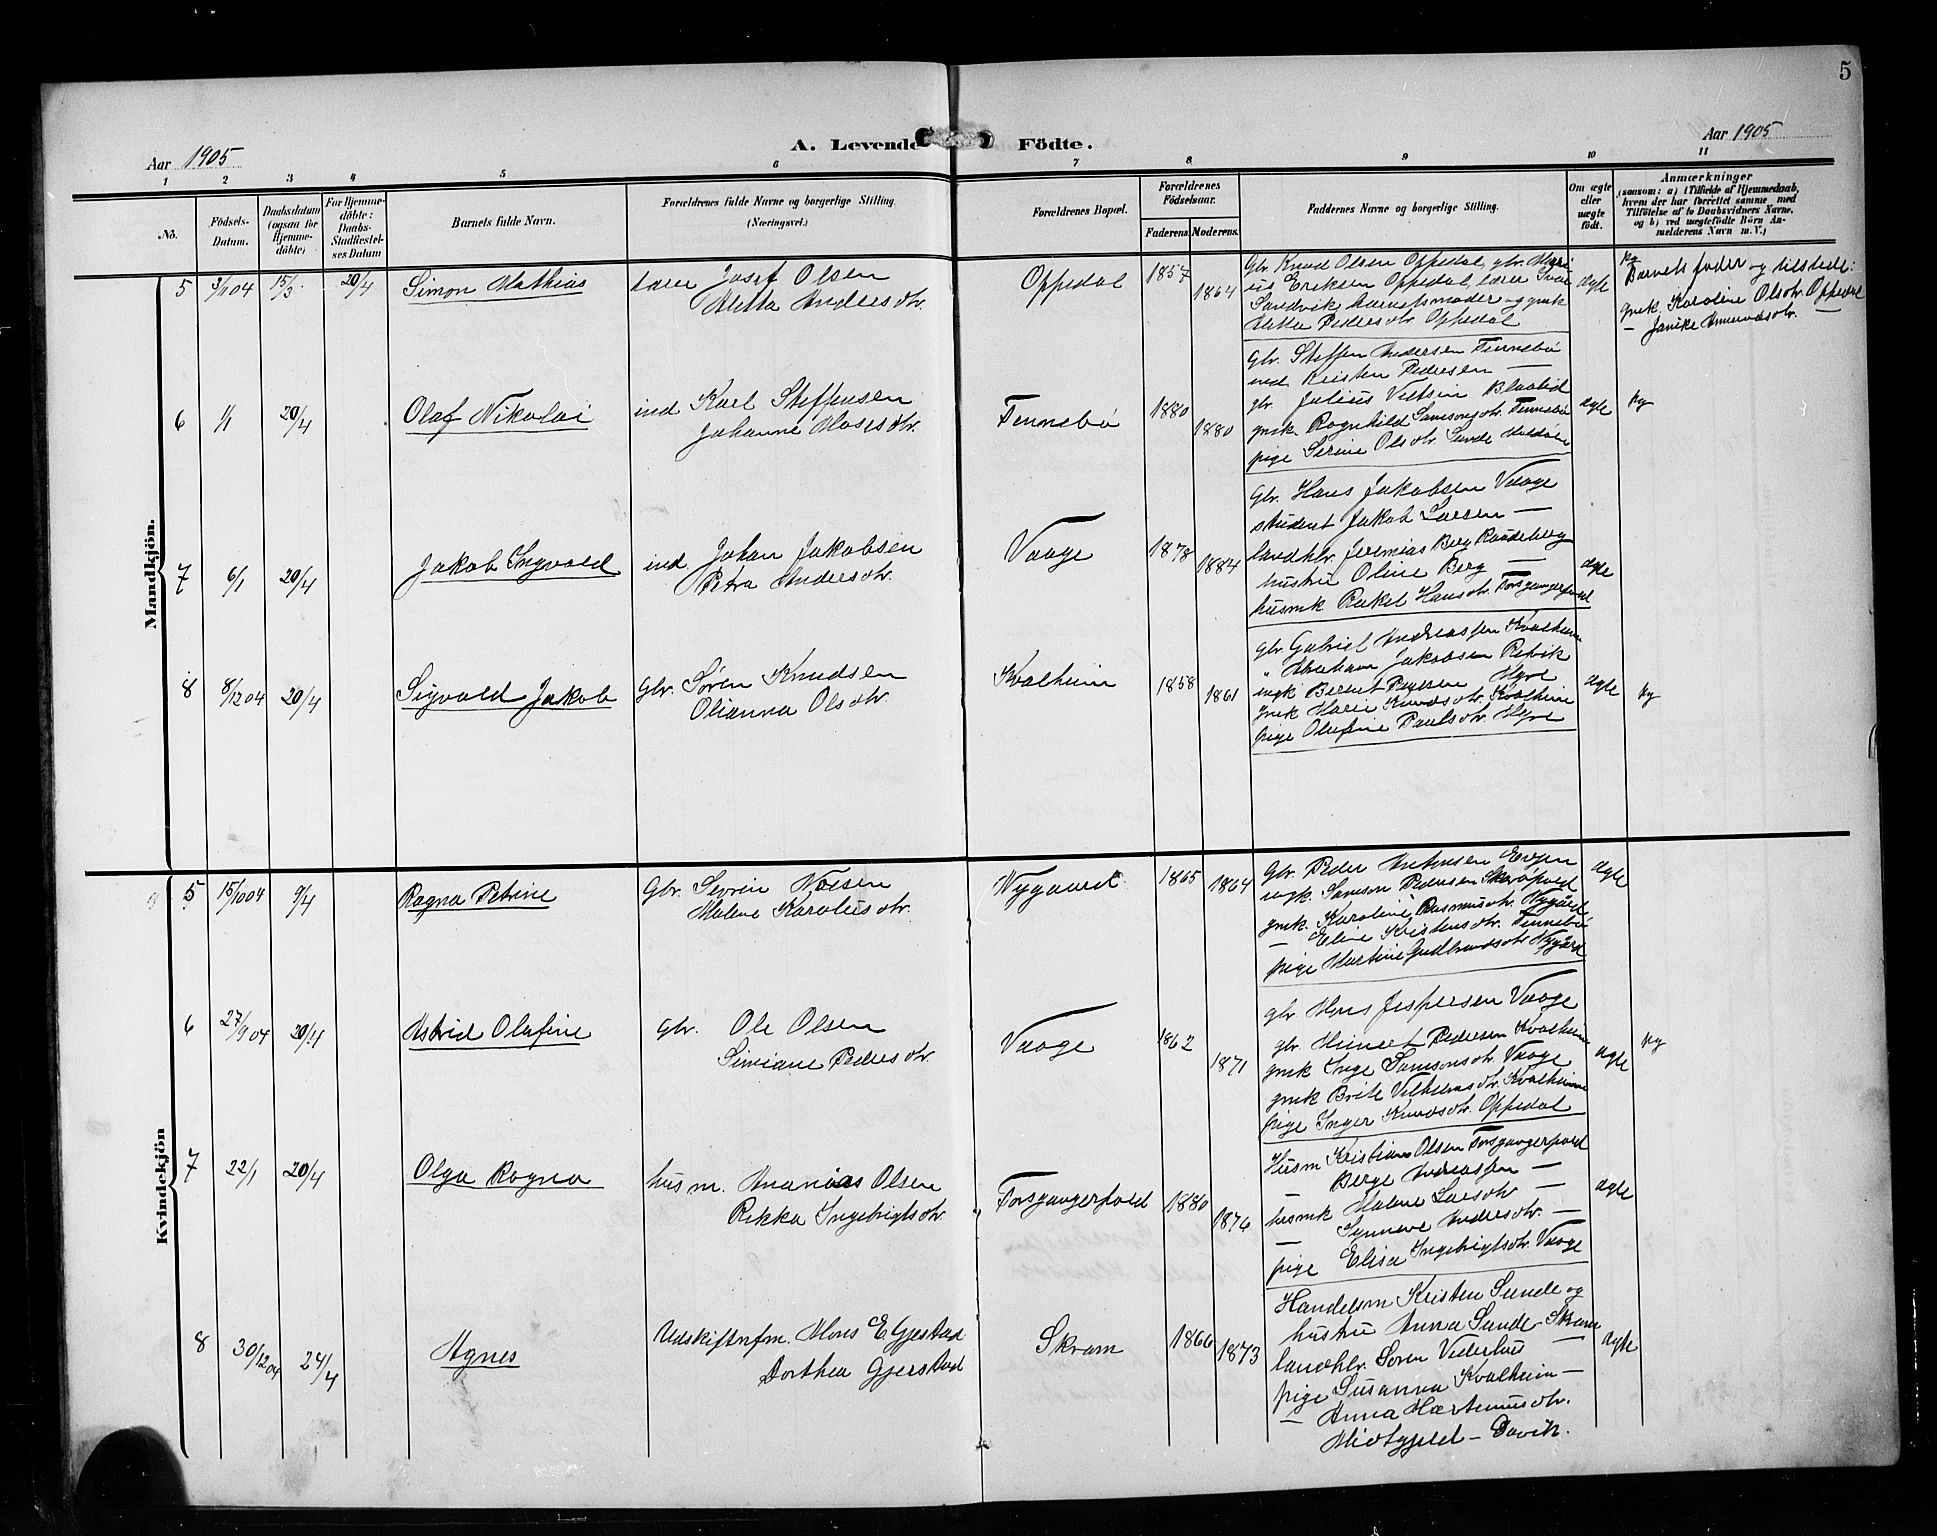 5
Aar 1905
A. Levende Födte.
Aar 1905
1 2 3 4 5 6 7 8 9 10 11
No.
Födsels-Datum.
Daabsdatum (ogsaa for Hjemme-döbte)
For Hjemme-döbte: Daabs-Stadfæstel-ses Datum
Barnets fulde Navn.
Forældrenes fulde Navne og borgerlige Stilling.
(Næringsvei.)
Forældrenes Bopæl.
Forældrenes Födselsaar.
Faderens. Moderens.
Faddernes Navne og borgerlige Stilling.
Om ægte eller uægte født.
Anmærkninger
(saasom: a) i Tilfælde af Hjemmedaab, hvem der har forrettet samme, med Tilföielse af to Daabsvidners Navne, og b) ved uægtefödte Börn An-melderens Navn m. V.)
Mandkjön.
5 3/1 04 15/3. 20/4 Simon Mathias
lærer Josef Olsen
Aletta Andersdtr.
Oppedal 1857 1864
Gbr. Knud Olsen Oppedal, gbr. Mari-
us Eriksen Oppedal, lærer
Sandvik, barnets moder og gmk
Aletta Pedersdtr. Oppedal
ægte
Barnets fader og tilstede:
gmk. Karoline Olsdtr. Oppedal
— Janike —
6 1/1 20/4 Olaf Nikolai
ind Karl Steffensen
Johanne Mosesdtr.
Tennebø 1880 1880
Gbr. Steffen Andersen Tennebø
ind. Kristen Pedersen —
gbr. Julius
gmk. Ragnhild Samsonsdtr. Tennebø
pige Serine Olsdtr. Sunde
ægte
7 6/1 20/4 Jakob Ingvald
ind. Johan Jakobsen
Petra Andersdtr.
Vaage 1878 1884
Gbr. Hans Jakobsen Vaage
student Jakob Larsen —
landhdlr. Jeremias Berg Raudeberg
hustru Oline Berg —
husmk. Rakel Hansdtr. Torsgangerpold
ægte
8 8/12 04 20/4 Sigvald Jakob
Gbr. Søren Knudsen
Olianna Olsdtr.
Kvalheim 1858 1861
gbr. Gabriel Andreassen Kvalheim
" Abraham Jakobsen Refvik
ungk Bernt Pedersen Hyre
gmk Marie Knudsdtr. Kvalheim
pige Olufine Paulsdtr. Hyre
ægte
Kvindekjön
5 15/10 04 9/4 Ragna Petrine
Gbr. Sevrin Nilsen
Malene Karolusdtr.
Nygaard 1865 1864
Gbr. Peder Antonsen
ungk. Samson Pedersen
gmk. Karoline Rasmusdtr. Nygård
— Eline Kristensdtr. Tennebø
pige Martine Gudbrandsdtr Nygård
ægte
6 27/9 04 20/4 Astrid Olufine
gbr. Ole Olsen
Simiane Pedersdtr.
Vaage 1862 1871
gbr Mons Jespersen Vaage
gbr. Pedersen Kvalheim
gmk Inge Samsonsdtr. Vaage
gmk Brite Vilhelmsdtr. Kvalheim
pige Inger Knudsdtr. Oppedal
ægte
7 22/1 20/4 Olga Ragna
husm. Ananias Olsen
Rikka Ingebrigtsdtr.
Torsgangerpold 1880 1876
Husm Kristian Olsen Torsgangerpold
Berge Andreassen —
husmk Malene Larsdtr —
— Synneve Andersdtr. —
pige Elisa Ingebrigtsdtr. Vaage
ægte
8 30/12 04 24/4 Agnes
Udskiftnfm. Mons E Gjerstad
Dorthea Gjerstad
Skram 1866 1873
Handelsm Kristen Sunde og
hustru Anna Sunde Skram
landhdlr. Søren Vederhus —
pige Susanna Kvalheim —
— Anna Martinusdtr.
Midtgjeld — Davik.
ægte